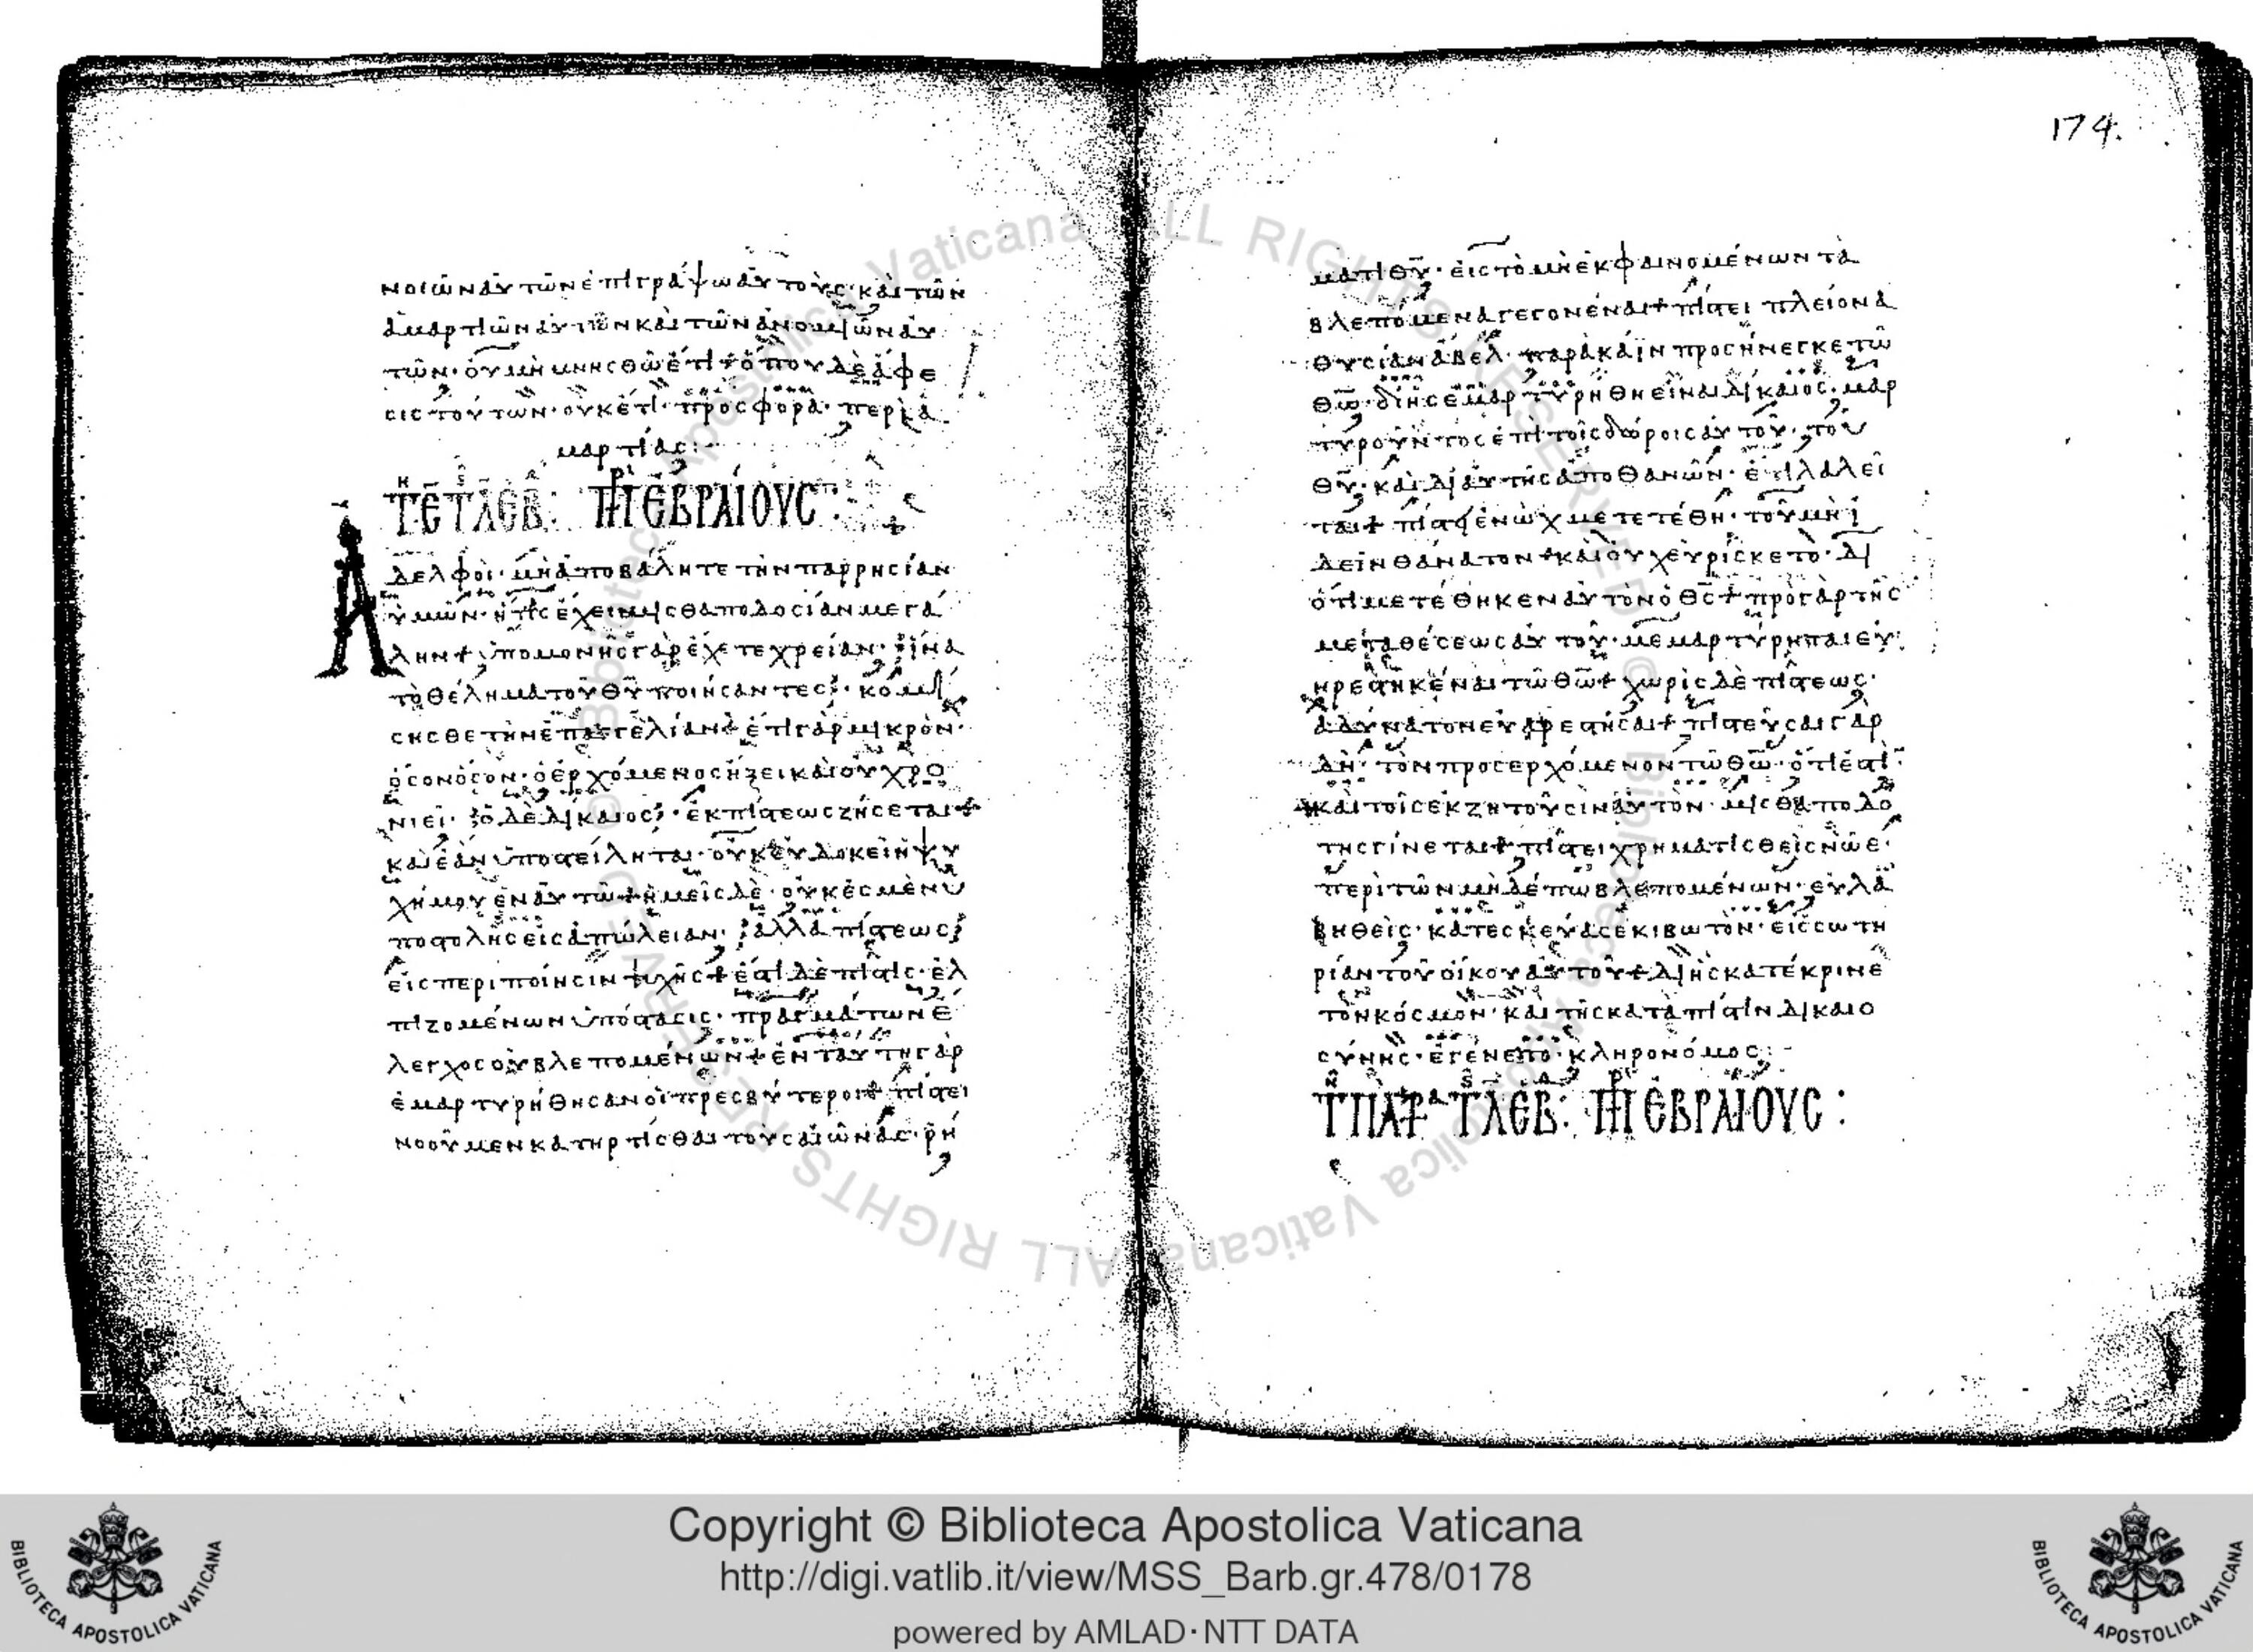 νοιῶν αὐτῶν ἐπιγράψω αὐτοὺς· καὶ τῶν
ἁμαρτιῶν αὐτῶν καὶ τῶν ἀνομιῶν αὐ
τῶν· οὐ μὴ μνησθῶ ἔτι + ὅπου δὲ ἄφε
σις τούτων· οὐκέτι· προσφορὰ· περὶ ἁ
μαρτίας:
ΠΡ ΕΒΡΑΙΟΥΣ:
Αδελφοὶ· μὴ ἀποβάλητε τὴν παρρησίαν
ὑμῶν· ἥτις ἔχει μισθαποδοσίαν μεγά
λην + ὑπομονῆς γὰρ ἔχετε χρείαν· ἵνα
τὸ θέλημα τοῦ θυ ποιήσαντες· κομί
σησθε τὴν ἐπαγγελίαν + ἔτι γὰρ μικρὸν·
ὅσον ὅσον· ὁ ἐρχόμενος ἥξει καὶ οὐ χρο
νιεῖ· ὁ δὲ δίκαιος· ἐκ πίστεως ζήσεται +
καὶ ἐὰν ὑποστείληται· οὐκ εὐδοκεῖ ἡ ψυ
χή μου ἐν αὐτῶ + ἡμεῖς δὲ· οὐκ ἐσμὲν ὑ
ποστολῆς εἰς ἀπώλειαν· ἀλλὰ πίστεως
εἰς περιποίησιν ψυχῆς + ἔστι δὲ πίστις· ἐλ
πιζομένων ὑπόστασις· πραγμάτων ἔ
λεγχος οὐ βλεπομένων + ἐν ταύτη γὰρ
ἐμαρτυρήθησαν οἱ πρεσβύτεροι + πίστει
νοοῦμεν κατηρτίσθαι τοὺς αἰῶνας· ῥή
174.
ματι θυ· εἰς τὸ μὴ ἐκ φαινομένων τὰ
βλεπόμενα γεγονέναι + πίστει πλείονα
θυσίαν ἄβελ· παρὰ κάϊν προσήνεγκε τῶ
θω· δι ἧς ἐμαρτυρήθη εἶναι δίκαιος· μαρ
τυροῦντος ἐπὶ τοῖς δώροις αὐτοῦ· τοῦ
θυ· καὶ δι αὐτῆς ἀποθανῶν· ἔτι λαλεῖ
ται + πίστει ἐνὼχ μετετέθη· τοῦ μὴ ἰ
δεῖν θάνατον + καὶ οὐχ εὑρίσκετο· δι
ότι μετέθηκεν αὐτὸν ὁ θς + πρὸ γὰρ τῆς
μεταθέσεως αὐτοῦ· μεμαρτύρηται εὐ
ηρεστηκέναι τῶ θω + χωρὶς δὲ πίστεως·
ἀδύνατον εὐαρεστῆσαι + πιστεῦσαι γὰρ
δῆ· τὸν προσερχόμενον τῶ θω· ὅτι ἐστὶ·
καὶ τοῖς ἐκζητοῦσιν αὐτὸν· μισθαποδό
της γίνεται + πίστει χρηματισθεὶς νῶε·
περὶ τῶν μηδέπω βλεπομένων· εὐλα
βηθεὶς· κατεσκεύασε κιβωτὸν· εἰς σωτη
ρίαν τοῦ οἴκου αὐτοῦ + δι ἧς κατέκρινε
τὸν κόσμον· καὶ τῆς κατὰ πίστιν δικαιο
σύνης· ἐγένετο· κληρονόμος:
ΠΡ ΕΒΡΑΙΟΥΣ:
Copyright © Biblioteca Apostolica Vaticana
http://digi.vatlib.it/view/MSS_Barb.gr.478/0178
powered by AMLAD·NTT DATA
BIBLIOTECA APOSTOLICA VATICANA
BIBLIOTECA APOSTOLICA VATICANA